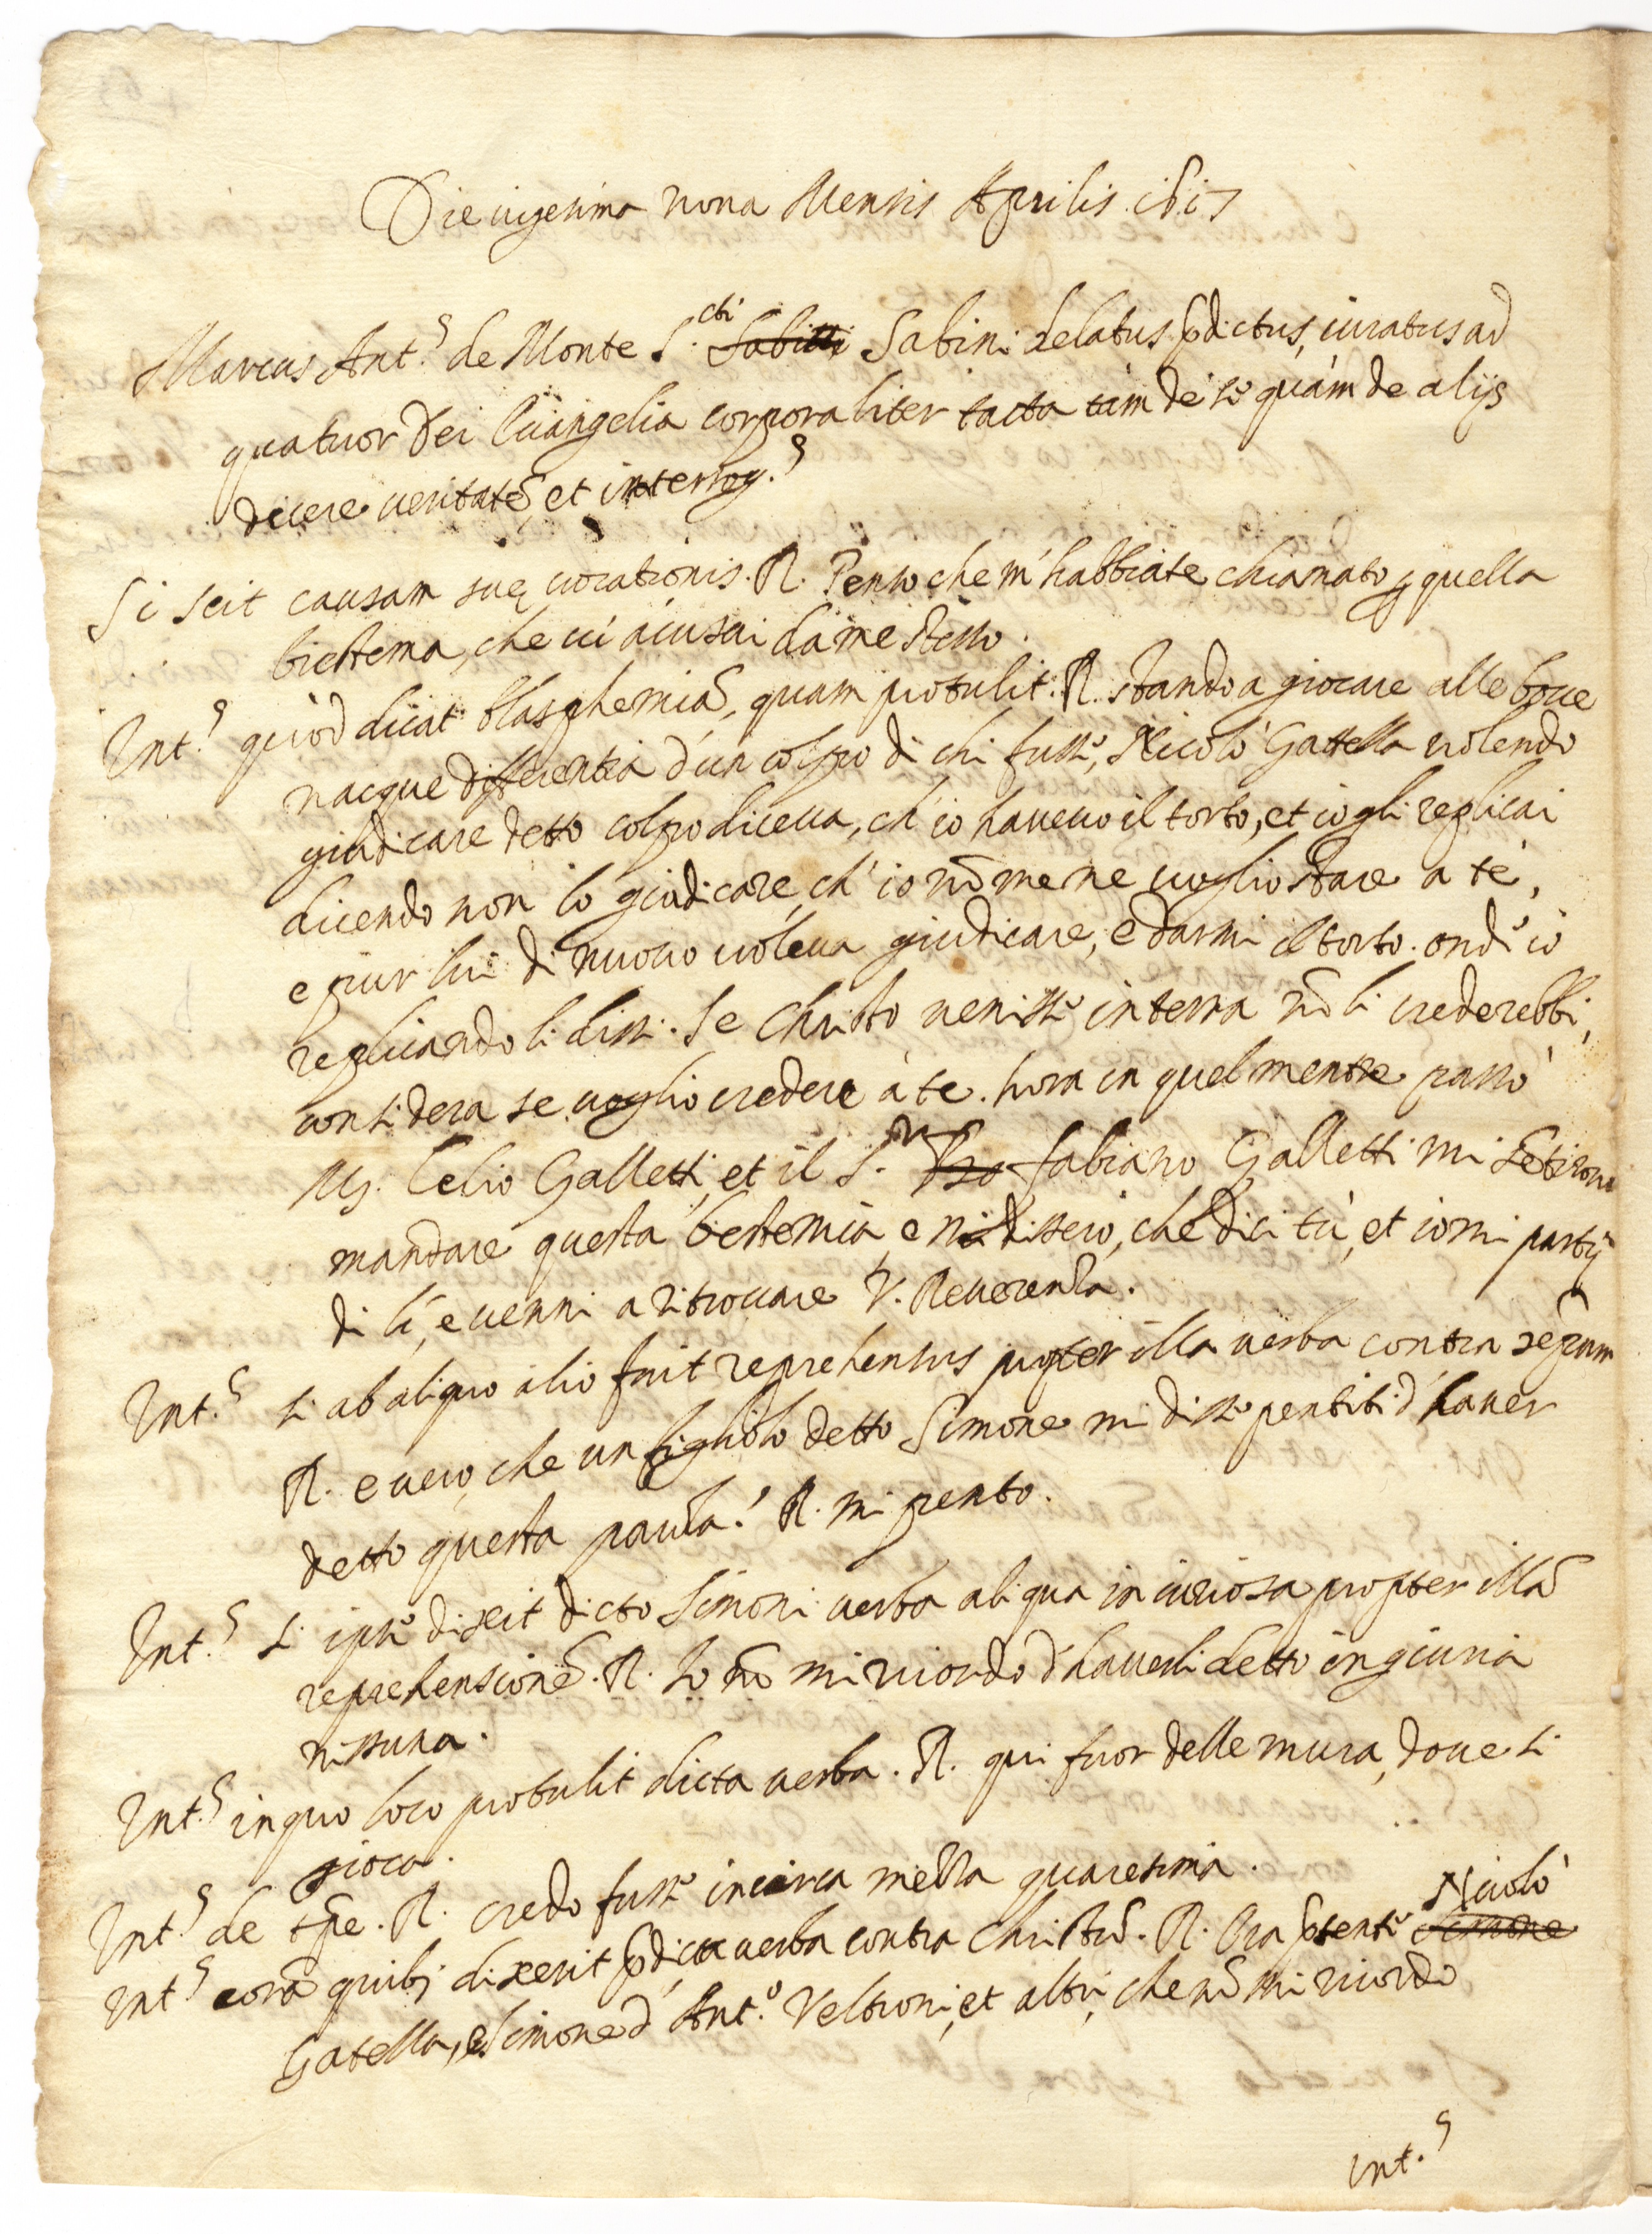 Die vigesima nona Mensis Aprilis
Marcus Ant.s de Monte S.cti Sabini delatus pdictus, iuratus ad
quatuor Dei Euangelia corporaliter tacta tàm de se quàm de alijs
dicere veritatē, et interrog.s
Si scit causam suę vocationis. R. Penso che m'habbiate chiamato p quella
biestema, che vi acusai da me stesso.
Int.s quòd dicat blasphemiā, quam protulit. R. stando a giocare alle bocce
nacque differentia d'un colpo di chi fusse, Nicolò Gattella volendo
giudicare detto colpo diceva, ch'io havevo il torto, et io gli replicai
dicendo non lo giudicare, ch'io nō me ne voglio stare a te,
e pur lui di nuovo voleva giudicare, e darmi il torto. ond'io
replicando li dissi. Se Christo venisse in terra nō li crederebbi,
considera se voglio credere à te. hora in quel mentre passò
Ms. Celio Galletti, et il S. Fabiano Galletti mi sentirono
mandare questa biestemia, e mi dissero, che dici tù, et io mi partij
di lì, e venni a ritrovare V. Reverenza.
Int.s si ab aliquo alio fuit reprehensus propter illa verba contra
R. e vero, che un figliolo detto Simone mi disse pentiti d'haver
detto questa parola! R. mi pento.
Int.s si ipse dixit dicto Simoni verba aliqua iniuriosa propter illā
reprehensionē. R. Io nō mi ricordo d'haverli detto ingiuria
nissuna.
Int.s in quo loco protulit dicta verba. R. qui fuor delle mura, dove si
gioca.
Int.s de tpe. R. credo fusse incirca mezza quaresima.
Int.s corā quibs dixerit pdicta verba contra Christū. R. Era pṣente Simone Nicolò
Gatella, e Simone d'Ant.o Veltroni, et altri, che nō mi ricordo
Int.s